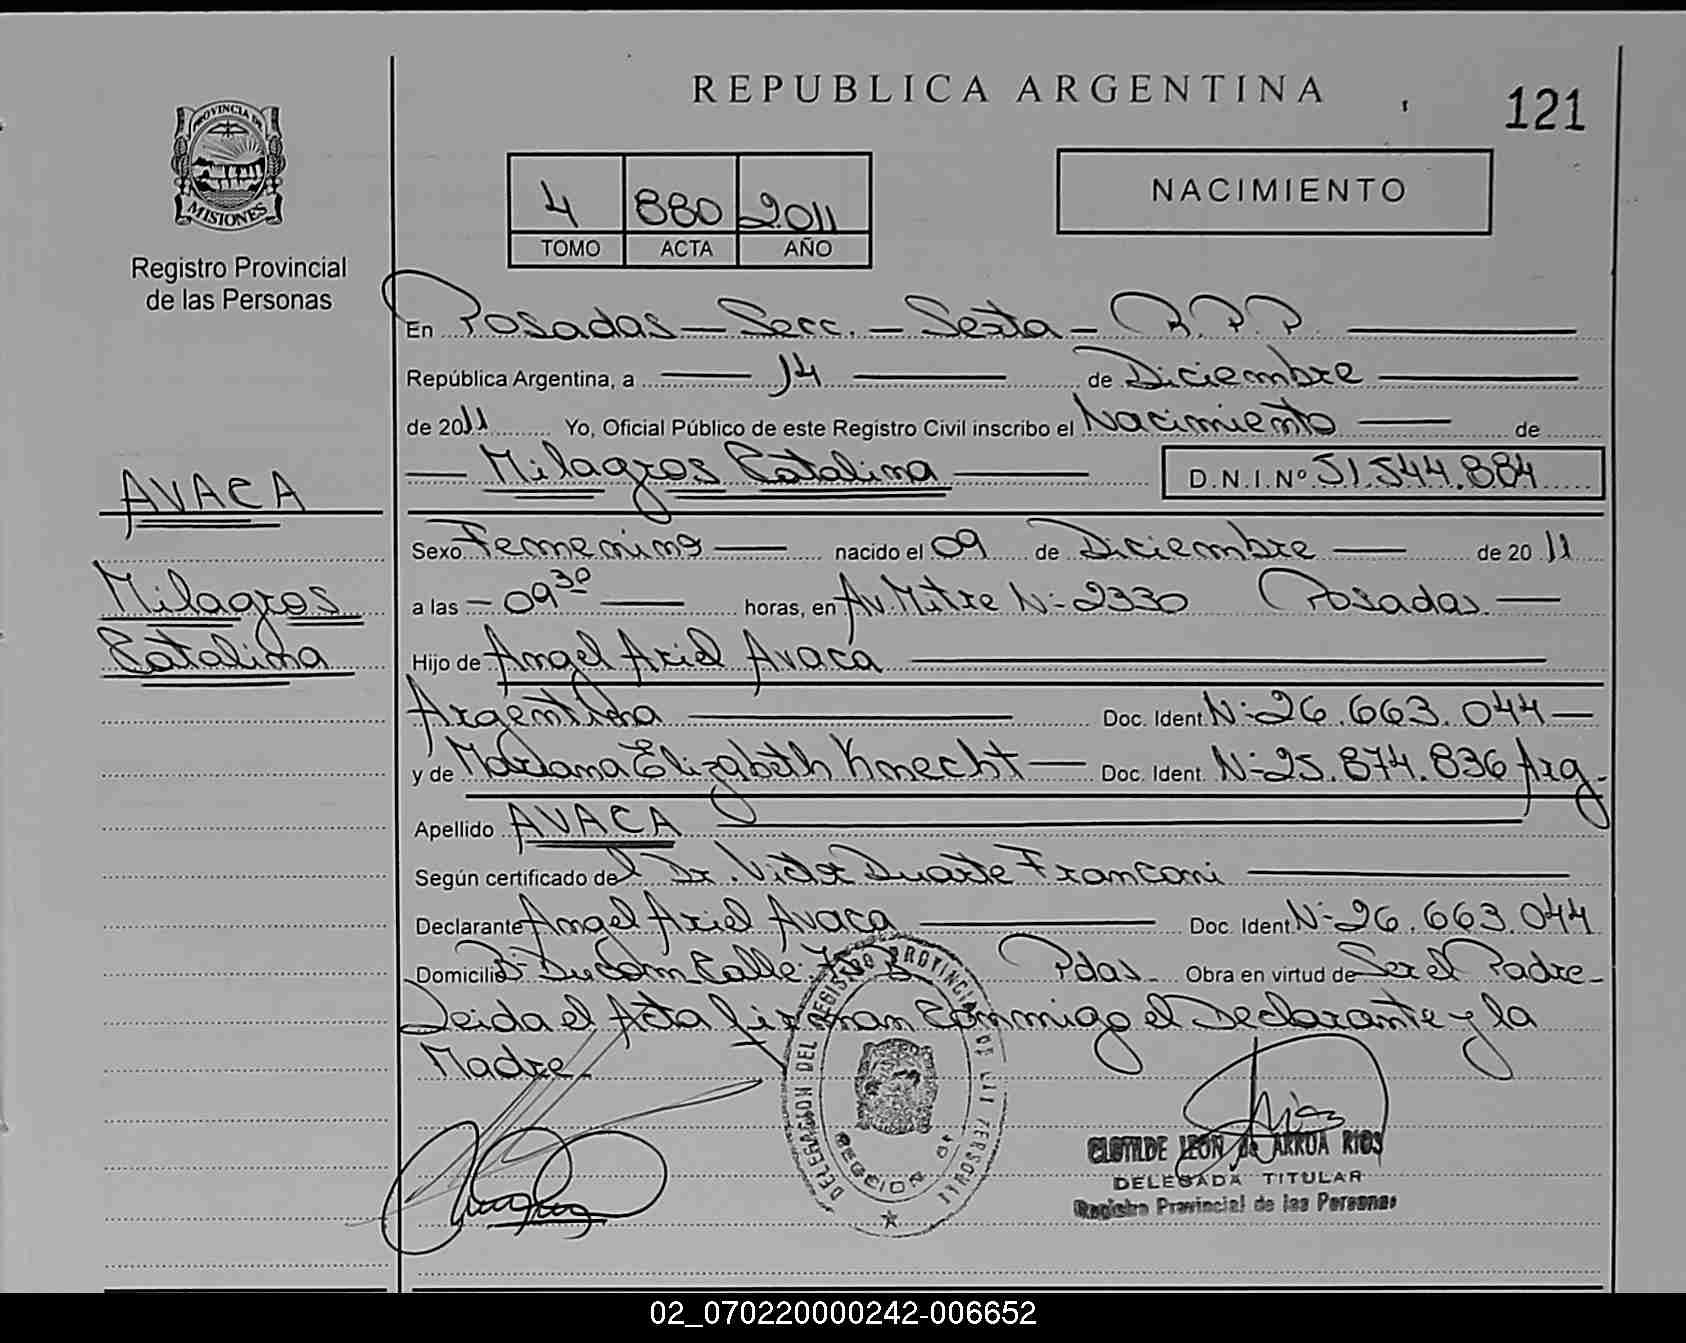 REPUBLICA ARGENTINA
121
PROVINCIA DE
MISIONES
Registro Provincial
de las Personas
4 880 2011
TOMO ACTA AÑO
NACIMIENTO
En Posadas - Secc. - Sexta - R.P.P.
República Argentina, a 14 de Diciembre
de 2011 Yo, Oficial Público de este Registro Civil inscribo el Nacimiento de
Milagros Catalina D.N.I.Nº 51.544.884
AVACA
Sexo Femenino nacido el 09 de Diciembre de 20 11
Milagros
Catalina
a las - 09 30 horas, en Av. Mitre Nº 2330 Posadas
Hijo de Angel Ariel Avaca
Argentina Doc. Ident Nº 26.663.044
y de Mariana Elizabeth Knecht Doc. Ident. Nº 25.874.836 Arg.
Apellido AVACA
Según certificado del Dr. Victor Duarte Franconi
Declarante Angel Ariel Avaca Doc. Ident Nº 26.663.044
Domicilio Bº Calle Pdas. Obra en virtud de Ser el Padre-
Leida el Acta firman Conmigo el Declarante y la
Madre-
DELEGACION DEL REGISTRO PROVINCIAL DE LAS PERSONAS
SECCION 6ª
CLOTILDE LEON de ARRUA RIOS
DELEGADA TITULAR
Registro Provincial de las Personas
02_070220000242-006652